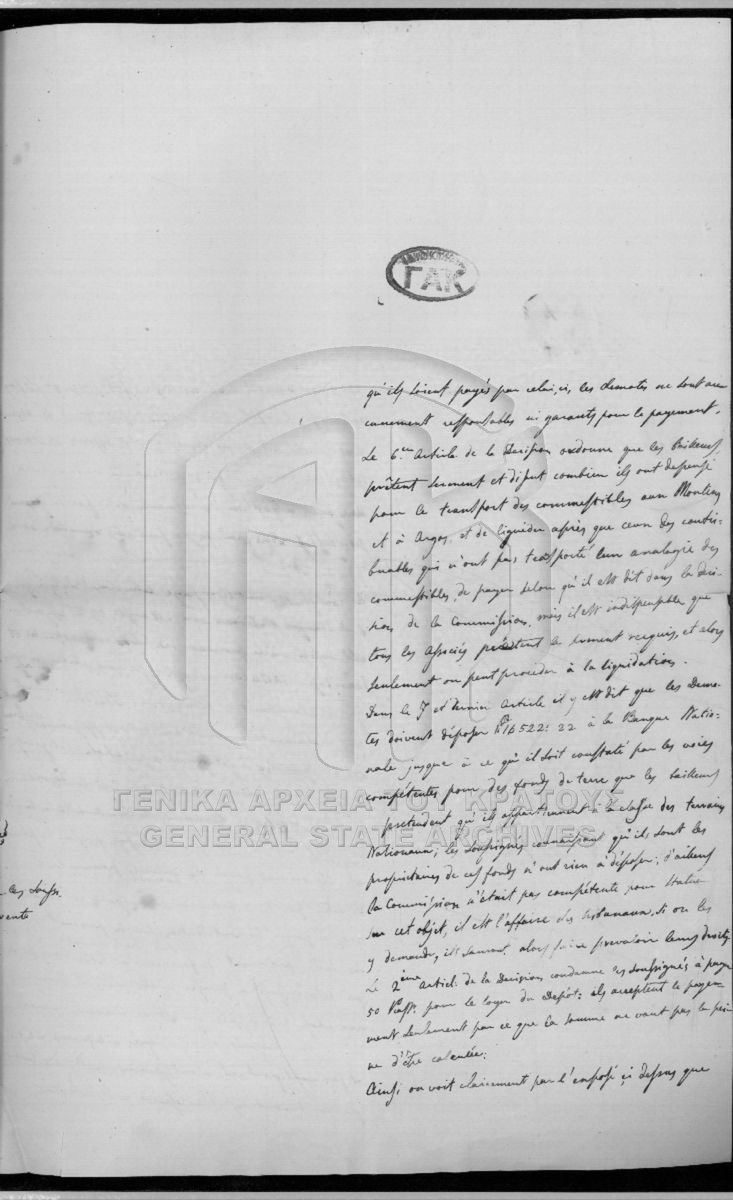 ΓΑΚ
qu'ils soient payés par celui-ci, les demotes ne sont au=
cunement responsables ni garants pour le payement.
Le 6.me Article de la Decision ordonne que les Baileurs
prêtent serment et disent combien ils ont depensé
pour le transport des commestibles aux Moulins
et à Argos, et de liquider après que ceux des contri=
buables qui n'ont pas transporté leur analogie des
commestibles, de payer selon qu'il est dit dans la deci=
sion de la Commission, mais il est indispensable que
tous les Associés prêtent le serment requis, et alors
seulement on peut proceder à la liquidation.
Dans le 7 et dernier Article il y est dit que les Demo=
tes doivent déposer 16522: 22 à la Banque Natio=
nale jusque à ce qu'il soit constaté par les voies
compétentes pour des fonds de terre que les baileurs
pretendent qu'ils appartiennent à la classe des terrains
Nationaux; les soussignés connaissant qu'ils sont les
propriétaires de ces fonds n'ont rien à déposer; d'aileurs
la Commission n'était pas compétente pour statuer
sur cet objet, il est l'affaire des tribunaux, si on les
y demande, ils sauront alors faire prevaloir leurs droits.
Le 2ème Article de la Decision condamne les soussignés à payer
50 Piast. pour le loyer du Depôt; ils acceptent le paye=
ment seulement par ce que la somme ne vaut pas la pei=
ne d'être calculée.
Ainsi on voit clairement par l'exposé ci dessus que
les souss.
vente
ΓΕΝΙΚΑ ΑΡΧΕΙΑ ΤΟΥ ΚΡΑΤΟΥΣ
GENERAL STATE ARCHIVES